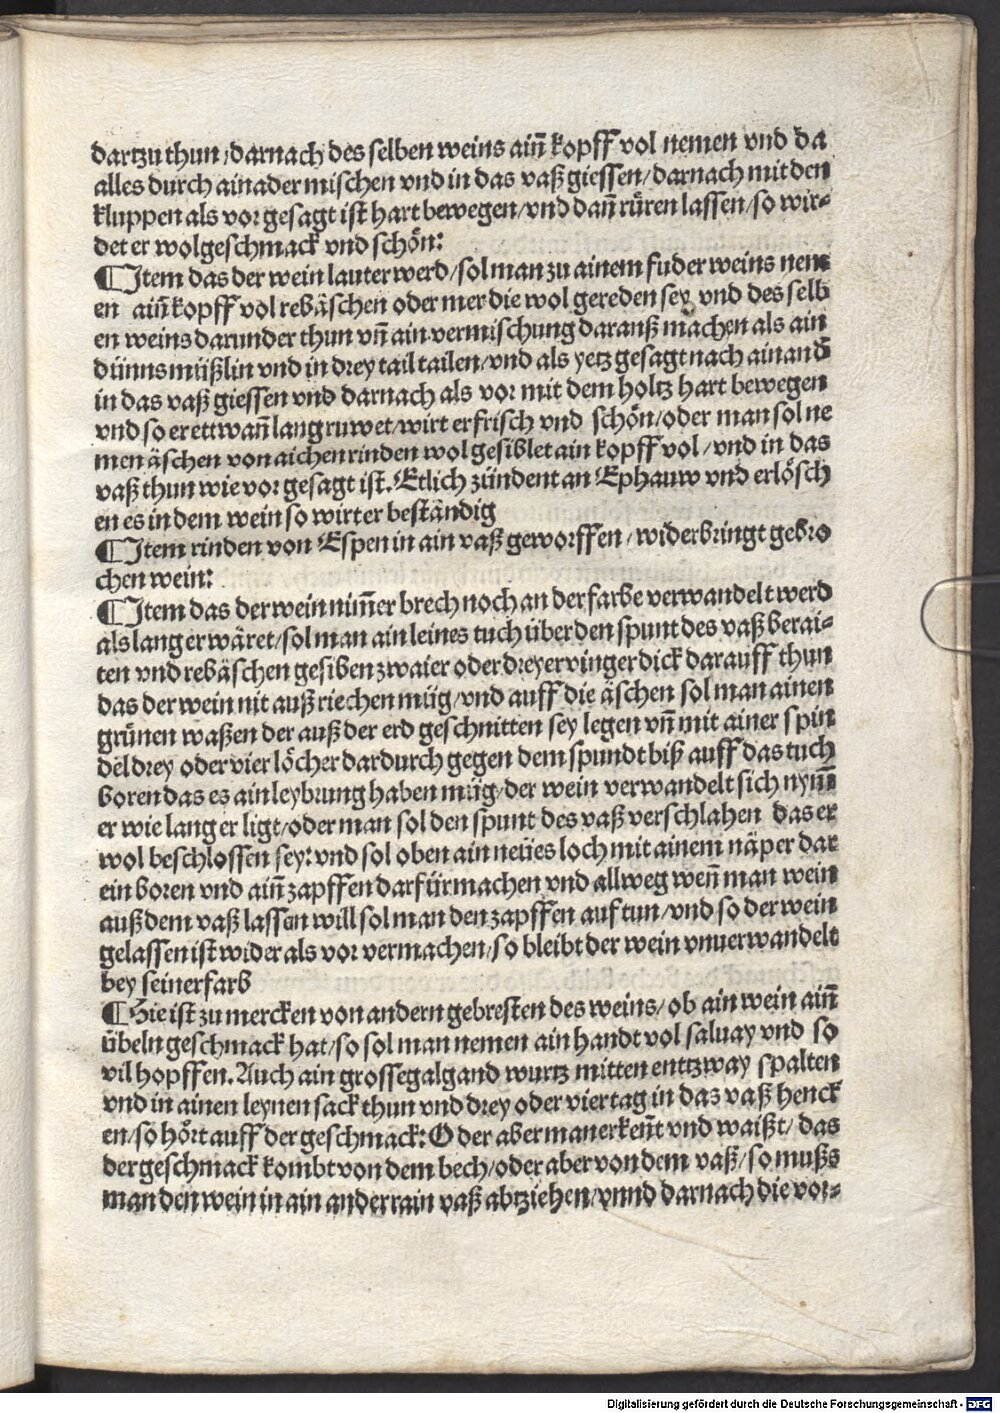 dartzu thun / darnach des selben weins aiñ kopff vol nemen vnd da
alles durch ainader mischen vnd in das vaß giessen / darnach mit den
kluppen als vor gesagt ist hart bewegen / vnd dañ rüren lassen / so wir⸗
det er wolgeschmack vnd schön:
¶Item das der wein lauter werd / sol man zu ainem fuder weins nem
en aiñ kopff vol rebäschen oder mer die wol gereden sey vnd des selb
en weins darunder thun vñ ain vermischung darauß machen als ain
dünns müßlin vnd in drey tail tailen / vnd als yetz gesagt nach ainand
in das vaß giessen vnd darnach als vor mit dem holtz hart bewegen
vnd so er ettwañ lang ruwet / wirt er frisch vnd schön / oder man sol ne
men äschen von aichen rinden wol gesiblet ain kopff vol / vnd in das
vaß thun wie vor gesagt ist. Etlich zündent an Ephauw vnd erlösch
en es in dem wein so wirt er beständig
¶Item rinden von Espen in ain vaß geworffen / widerbringt gebro
chen wein:
¶Item das der wein nim̃er brech noch an der farbe verwandelt werd
als lang er wäret / sol man ain leines tuch über den spunt des vaß berai⸗
ten vnd rebäschen gesiben zwaier oder dreyer vinger dick darauff thun
das der wein nit auß riechen müg / vnd auff die äschen sol man ainen
grünen waßen der auß der erd geschnitten sey legen vñ mit ainer spin
del drey oder vier löcher dardurch gegen dem spundt biß auff das tuch
boren das es ain leybrung haben müg / der wein verwandelt sich nym̃
er wie lang er ligt / oder man sol den spunt des vaß verschlahen das er
wol beschlossen sey: vnd sol oben ain neües loch mit ainem näper dar
ein boren vnd aiñ zapffen darfür machen vnd allweg weñ man wein
auß dem vaß lassen will sol man den zapffen auf tun / vnd so der wein
gelassen ist wider als vor vermachen / so bleibt der wein vnuerwandelt
bey seiner farb
¶Hie ist zu mercken von andern gebresten des weins / ob ain wein aiñ
übeln geschmack hat / so sol man nemen ain handt vol saluay vnd so
vil hopffen. Auch ain grosse galgand wurtz mitten entzway spalten
vnd in ainen leynen sack thun vnd drey oder vier tag in das vaß henck
en / so hört auff der geschmack: Oder aber man erkeñt vnd waißt / das
der geschmack kombt von dem bech / oder aber von dem vaß / so mußs
man den wein in ain ander rain vaß abtziehen / vnnd darnach die vor⸗
Digitalisierung gefördert durch die Deutsche Forschungsgemeinschaft - DFG